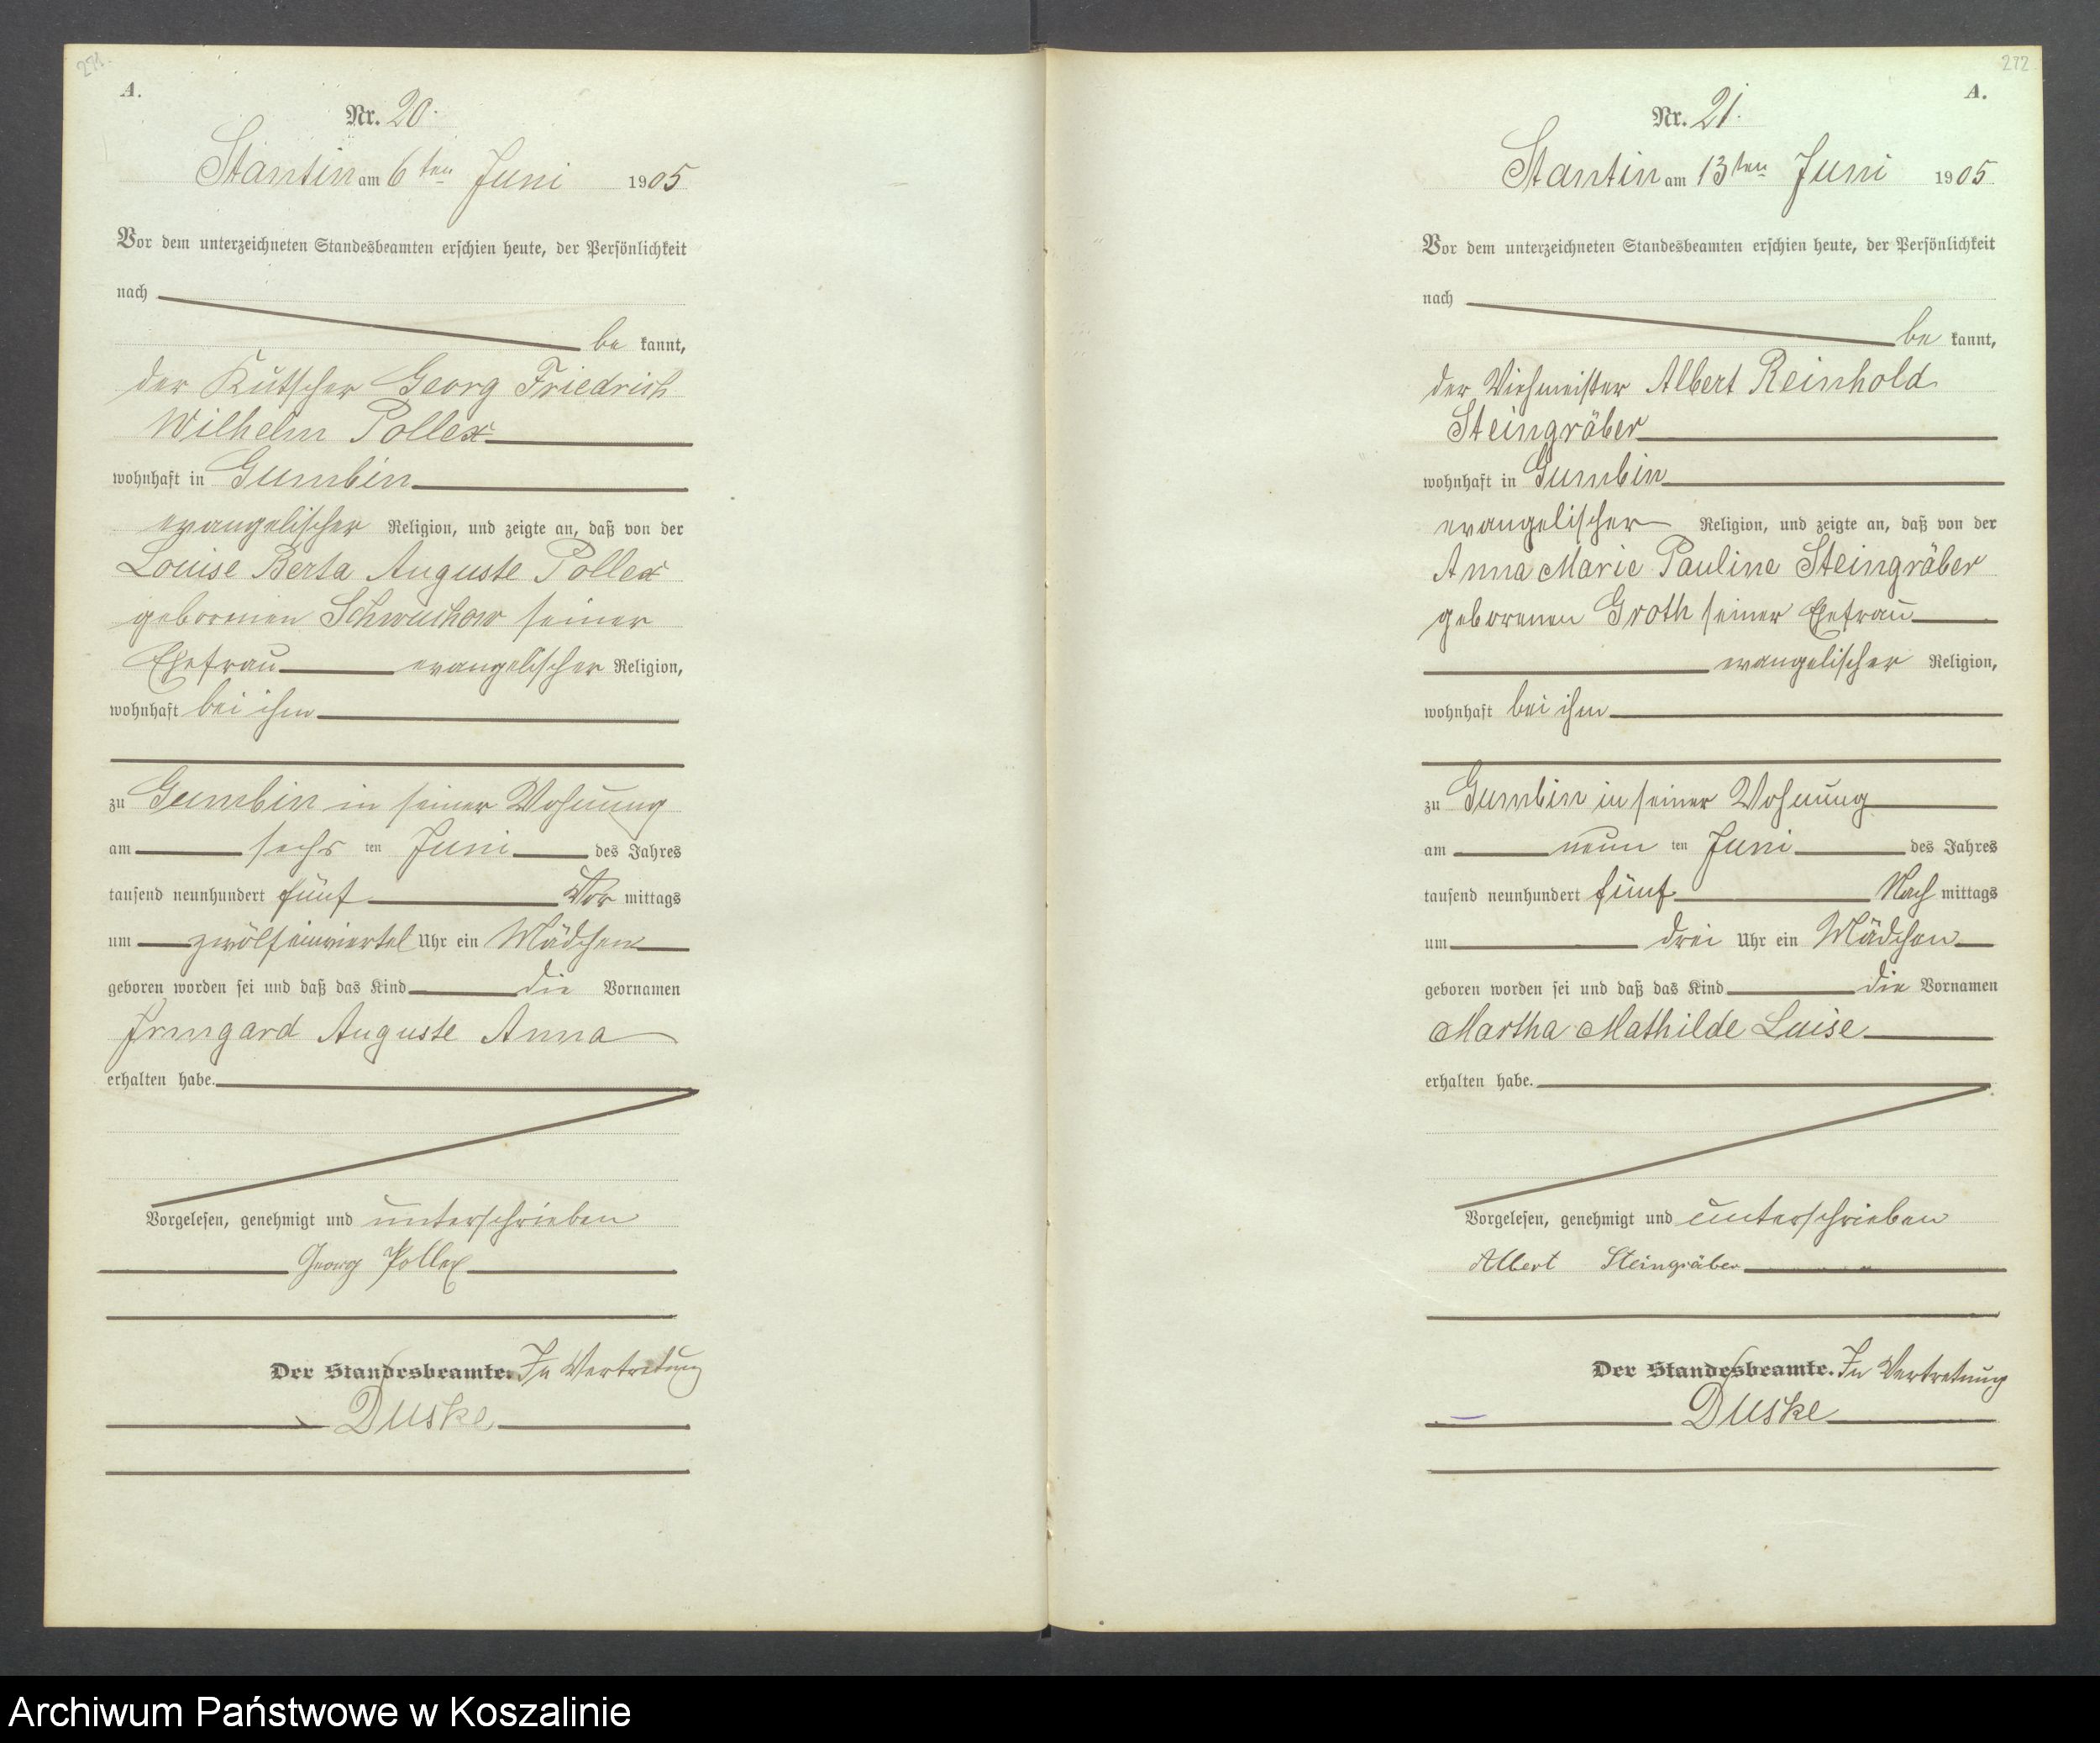 271.
A.
Nr. 20.
Stantin am 6ten Juni 1905
Vor dem unterzeichneten Standesbeamten erschien heute, der Persönlichkeit
nach
be kannt,
der Kutscher Georg Friedrich
Wilhelm Pollex
wohnhaft in Gumbin
evangelischer Religion, und zeigte an, daß von der
Louise Berta Auguste Pollex
geborenen Schwuchow seiner
Ehefrau evangelischer Religion,
wohnhaft bei ihm
zu Gumbin in seiner Wohnung
am sechs ten Juni des Jahres
tausend neunhundert fünf Vor mittags
um zwölfeinviertel Uhr ein Mädchen
geboren worden sei und daß das Kind die Vornamen
Irmgard Auguste Anna
erhalten habe.
Vorgelesen, genehmigt und unterschrieben
Georg Pollex
Der Standesbeamte. In Vertretung
Duske
272
A.
Nr. 21.
Stantin am 13ten Juni 1905
Vor dem unterzeichneten Standesbeamten erschien heute, der Persönlichkeit
nach
be kannt,
der Viehmeister Albert Reinhold
Steingräber
wohnhaft in Gumbin
evangelischer Religion, und zeigte an, daß von der
Anna Marie Pauline Steingräber
geborenen Groth seiner Ehefrau
evangelischer Religion,
wohnhaft bei ihm
zu Gumbin in seiner Wohnung
am neun ten Juni des Jahres
tausend neunhundert fünf Nach mittags
um drei Uhr ein Mädchen
geboren worden sei und daß das Kind die Vornamen
Martha Mathilde Luise
erhalten habe.
Vorgelesen, genehmigt und unterschrieben
Albert Steingräber
Der Standesbeamte. In Vertretung
Duske
Archiwum Państwowe w Koszalinie